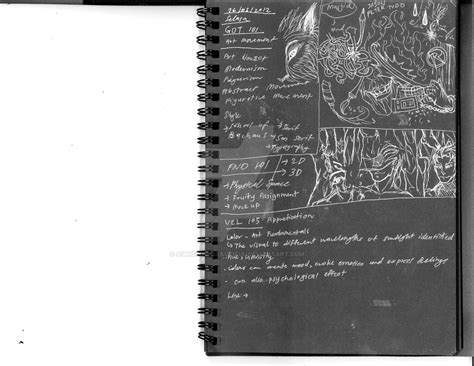 26/02/2012
Selasa
GDT 101
Art movement
Art
Modernism
Abstract Movement
Figurative Movement
Style
→ School of
Bauhaus
Serif
San serif
→ Typography
FND 101 → 2D
→ 3D
→ Physical Space
→ Equity Assignment
→ Mock up
VCL 103 Appreciation
Color - Art Fundamentals
The visual to different wavelengths of sunlight identified
hue, intensity
- Colors can create mood, evoke emotion and express feelings
- can also psychological effect